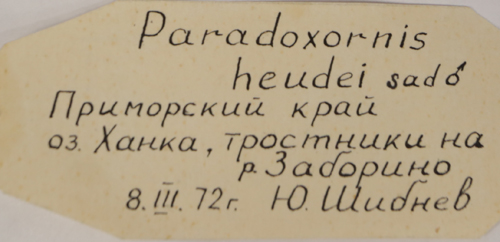 Paradoxornis
heudei sad ♂
Приморский край
оз. Ханка, тростники на
р. Заборино
8. III. 72 г. Ю. Шибнев